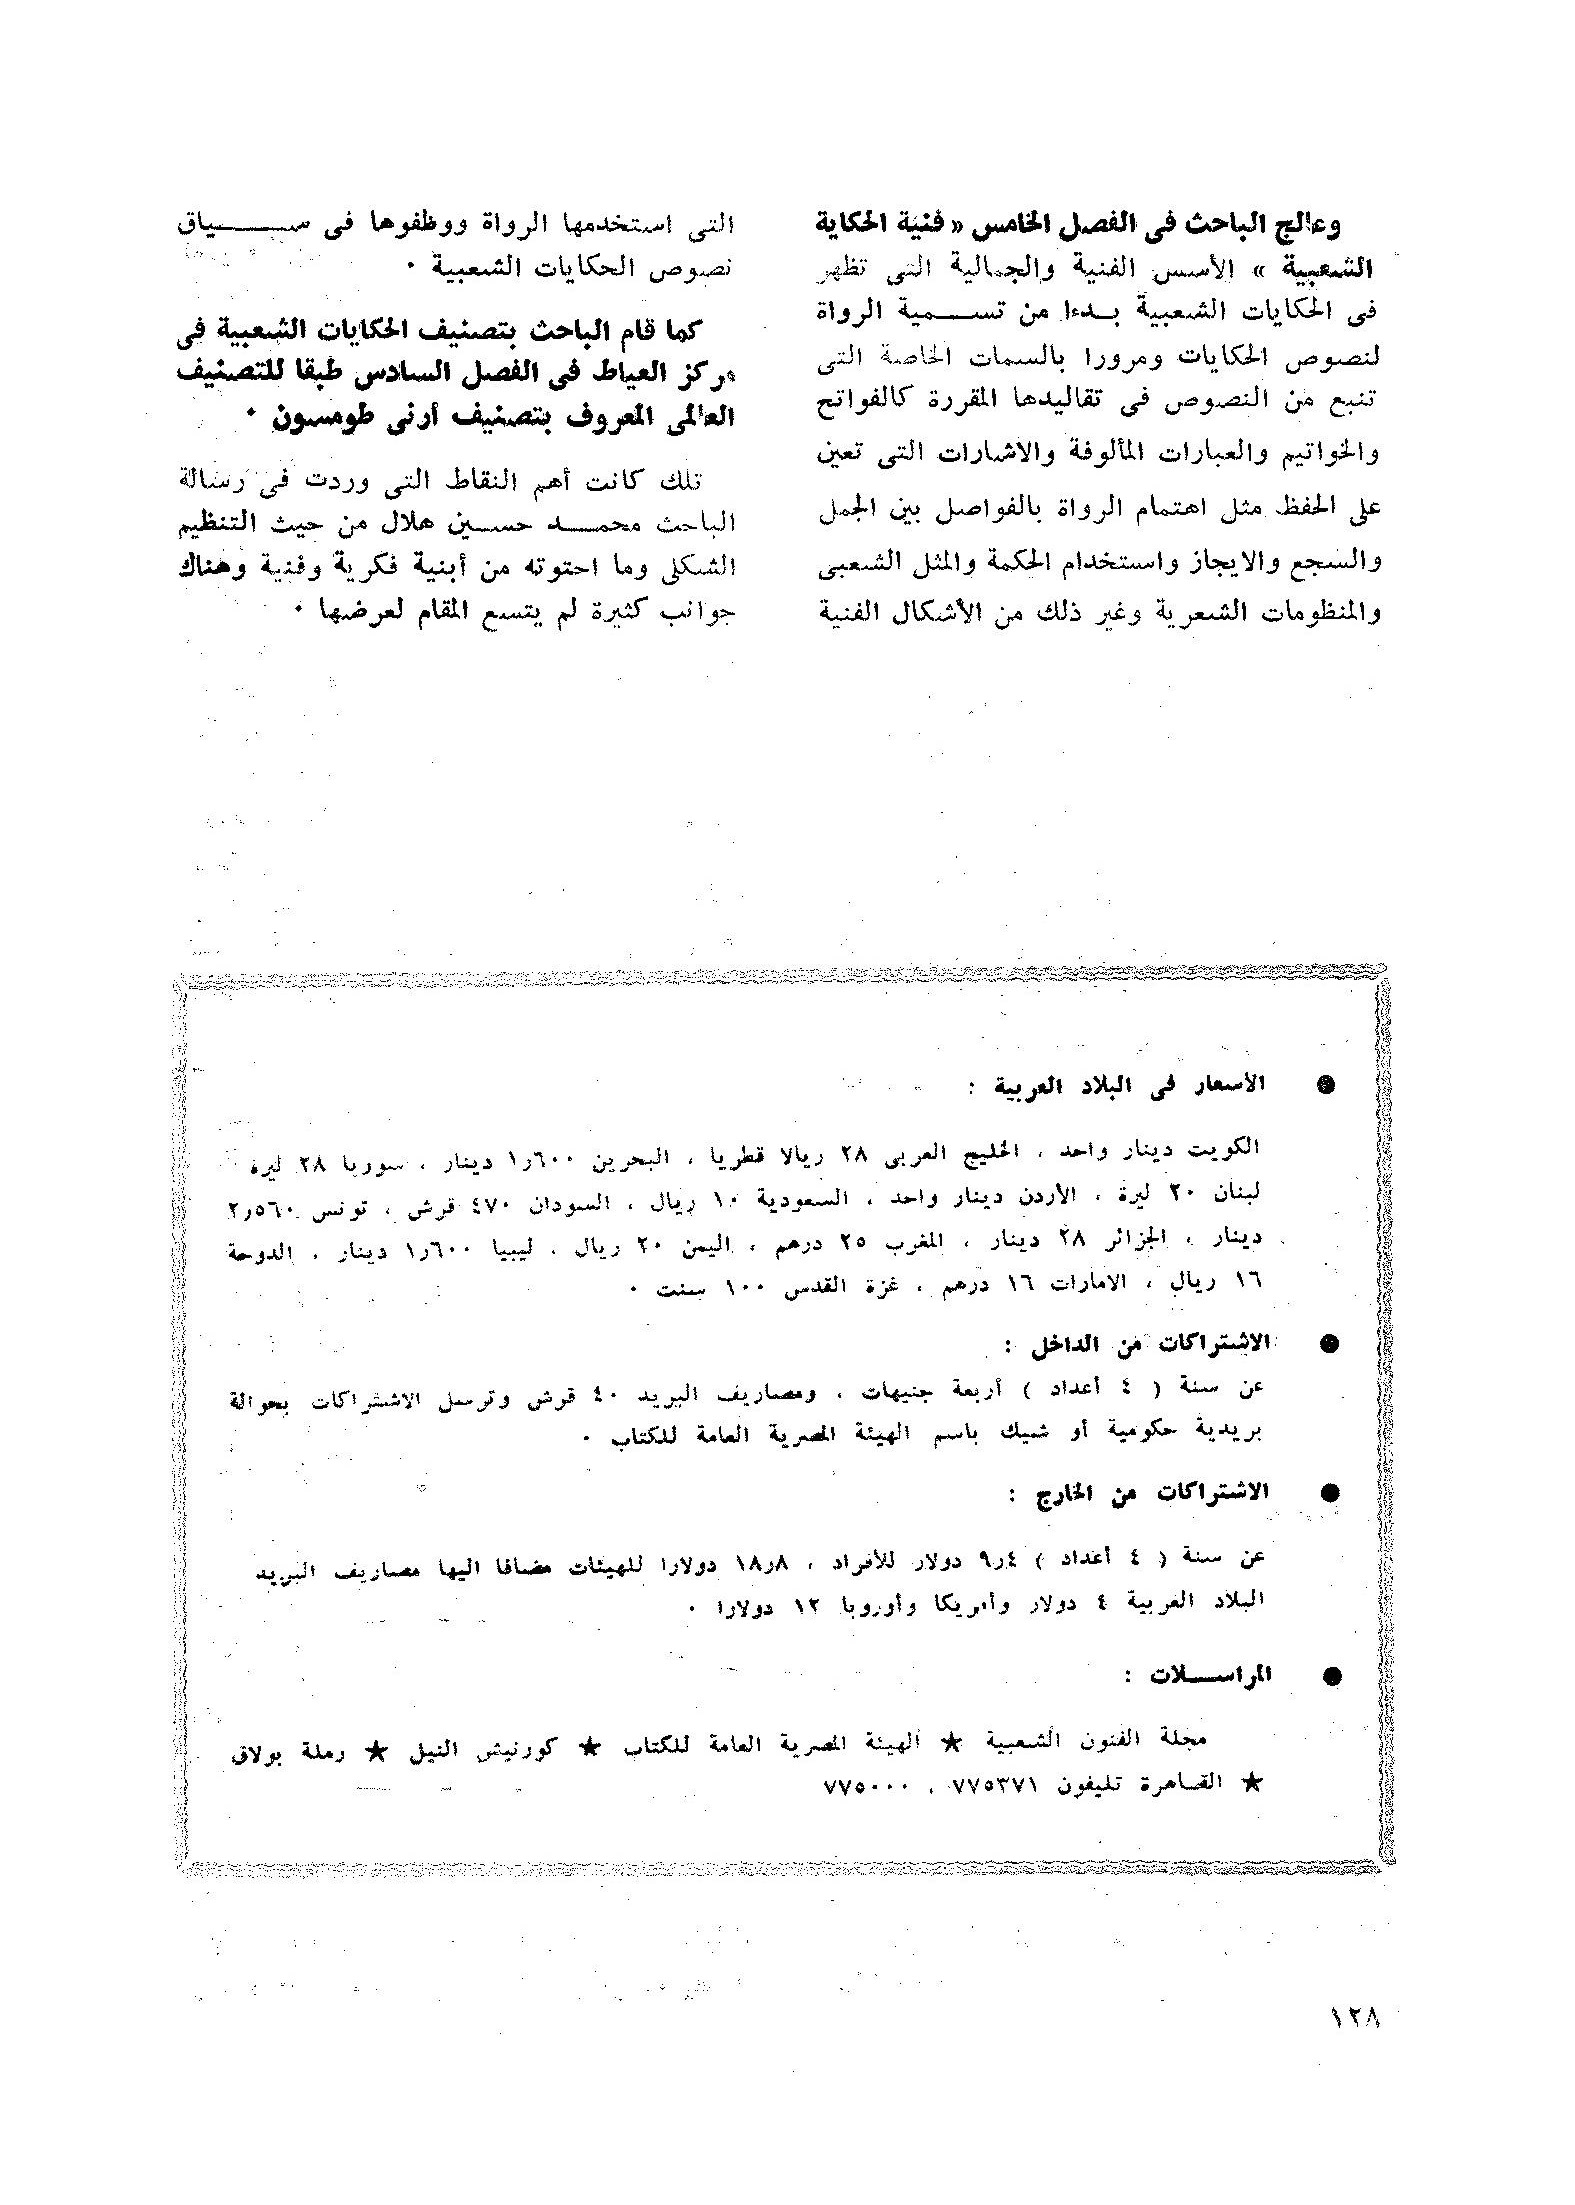 وعالج الباحث فى الفصل الخامس « فنية الحكاية
الشعبية » الأسس الفنية والجمالية التى تظهر
فى الحكايات الشعبية بدءا من تسمية الرواة
لنصوص الحكايات ومرورا بالسمات الخاصة التى
تنبع من النصوص فى تقاليدها المقررة كالفواتح
والخواتيم والعبارات المألوفة والاشارات التى تعين
على الحفظ مثل اهتمام الرواة بالفواصل بين الجمل
والسجع والايجاز واستخدام الحكمة والمثل الشعبى
والمنظومات الشعرية وغير ذلك من الأشكال الفنية
التى استخدمها الرواة ووظفوها فى سياق
نصوص الحكايات الشعبية ٠
كما قام الباحث بتصنيف الحكايات الشعبية فى
مركز العياط فى الفصل السادس طبقا للتصنيف
العالمى المعروف بتصنيف أرنى طومسون ٠
تلك كانت أهم النقاط التى وردت فى رسالة
الباحث محمد حسين هلال من حيث التنظيم
الشكلى وما احتوته من أبنية فكرية وفنية وهناك
جوانب كثيرة لم يتسع المقام لعرضها ٠
● الأسعار فى البلاد العربية :
الكويت دينار واحد ، الخليج العربى ٢٨ ريالا قطريا ، البحرين ١٫٦٠٠ دينار ، سوريا ٢٨ ليرة
لبنان ٢٠ ليرة ، الأردن دينار واحد ، السعودية ١٠ ريال ، السودان ٤٧٠ قرش ، تونس ٢٫٥٦٠
دينار ، الجزائر ٢٨ دينار ، المغرب ٢٥ درهم ، اليمن ٢٠ ريال ، ليبيا ١٫٦٠٠ دينار ، الدوحة
١٦ ريال ، الامارات ١٦ درهم ، غزة القدس ١٠٠ سنت ٠
● الاشتراكات من الداخل :
عن سنة ( ٤ أعداد ) أربعة جنيهات ، ومصاريف البريد ٤٠ قرش وترسل الاشتراكات بحوالة
بريدية حكومية أو شيك باسم الهيئة المصرية العامة للكتاب ٠
● الاشتراكات من الخارج :
عن سنة ( ٤ أعداد ) ٩٫٤ دولار للأفراد ، ١٨٫٨ دولارا للهيئات مضافا اليها مصاريف البريد
البلاد العربية ٤ دولار وأمريكا وأوروبا ١٢ دولارا ٠
● المراسلات :
مجلة الفنون الشعبية ★ الهيئة المصرية العامة للكتاب ★ كورنيش النيل ★ رملة بولاق
★ القاهرة تليفون ٧٧٥٣٧١ ، ٧٧٥٠٠٠
١٢٨